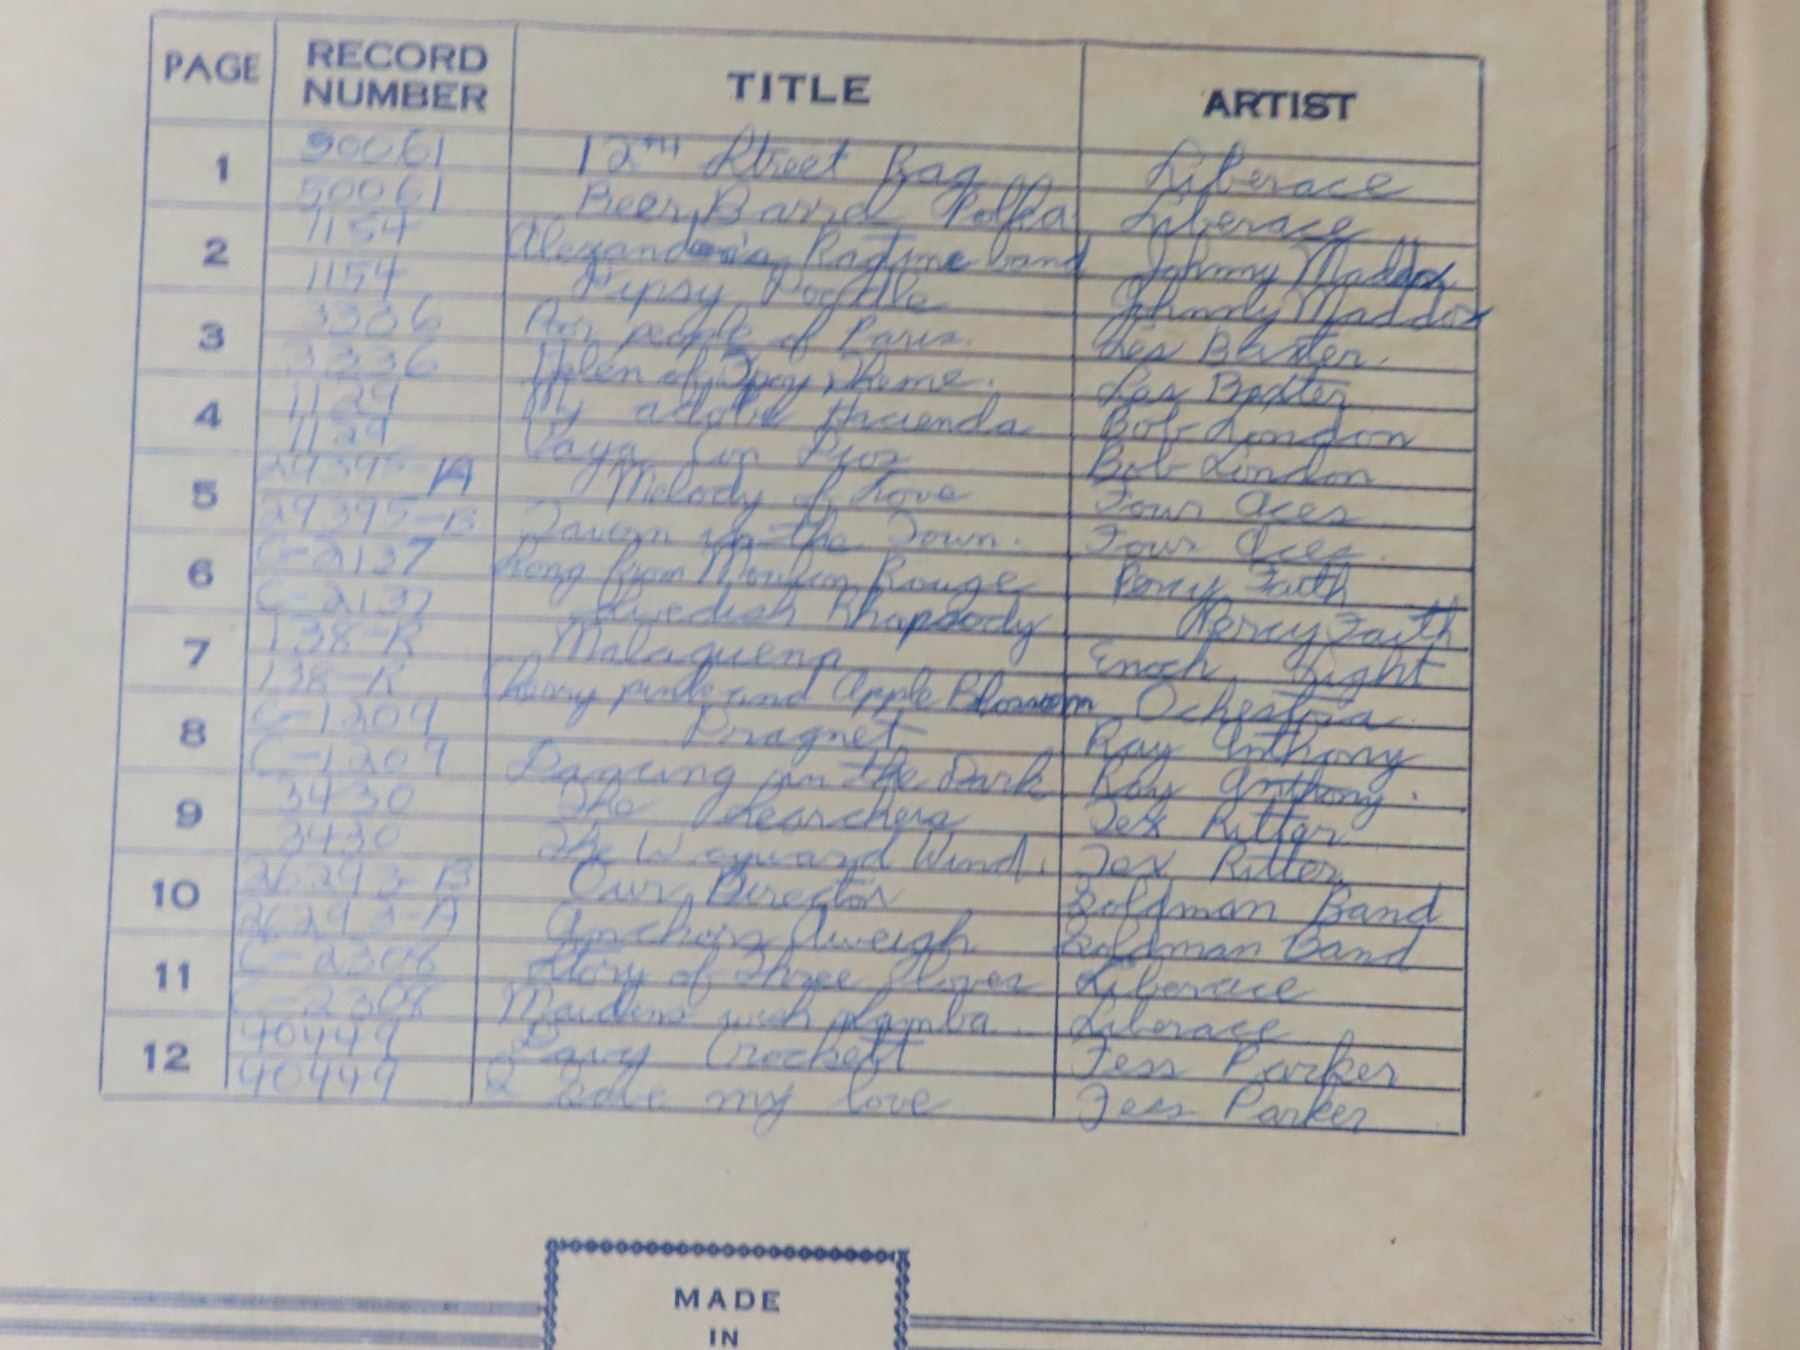 PAGE RECORD NUMBER TITLE ARTIST
1 50061 12TH Street Rag Liberace
50061 Beer Barrel Polka Liberace
2 1154 Alexander's Ragtime band Johnny Maddox
1154 Tipsy Poodle Johnny Maddox
3 3336 Poor people of Paris. Les Baxter.
3336 Helen of Troy Theme. Les Baxter
4 1129 My adobe Hacienda Bob London
1129 Vaya Con Dios Bob London
5 29395-A Melody of Love Four Aces
29395-B Tavern in the Town. Four Aces.
6 C-2137 Song from Moulin Rouge Percy Faith
C-2137 Swedish Rhapsody Percy Faith
7 138-R Malaguena Enoch Light
138-R Cherry pink and Apple Blossom Ochestra.
8 C-1209 Dragnet Ray Anthony
C-1209 Dancing in the Dark Ray Anthony.
9 3430 The Searchers Tex Ritter
3430 The Wayward Wind. Tex Ritter
10 26293-B Our Director Goldman Band
26293-A Anchors Aweigh Goldman Band
11 C-2308 Story of Three Loves Liberace
C-2308 Maidens wish Liberace
12 40449 Davy Crockett Fess Parker
40449 I Gave my love Fess Parker
MADE
IN